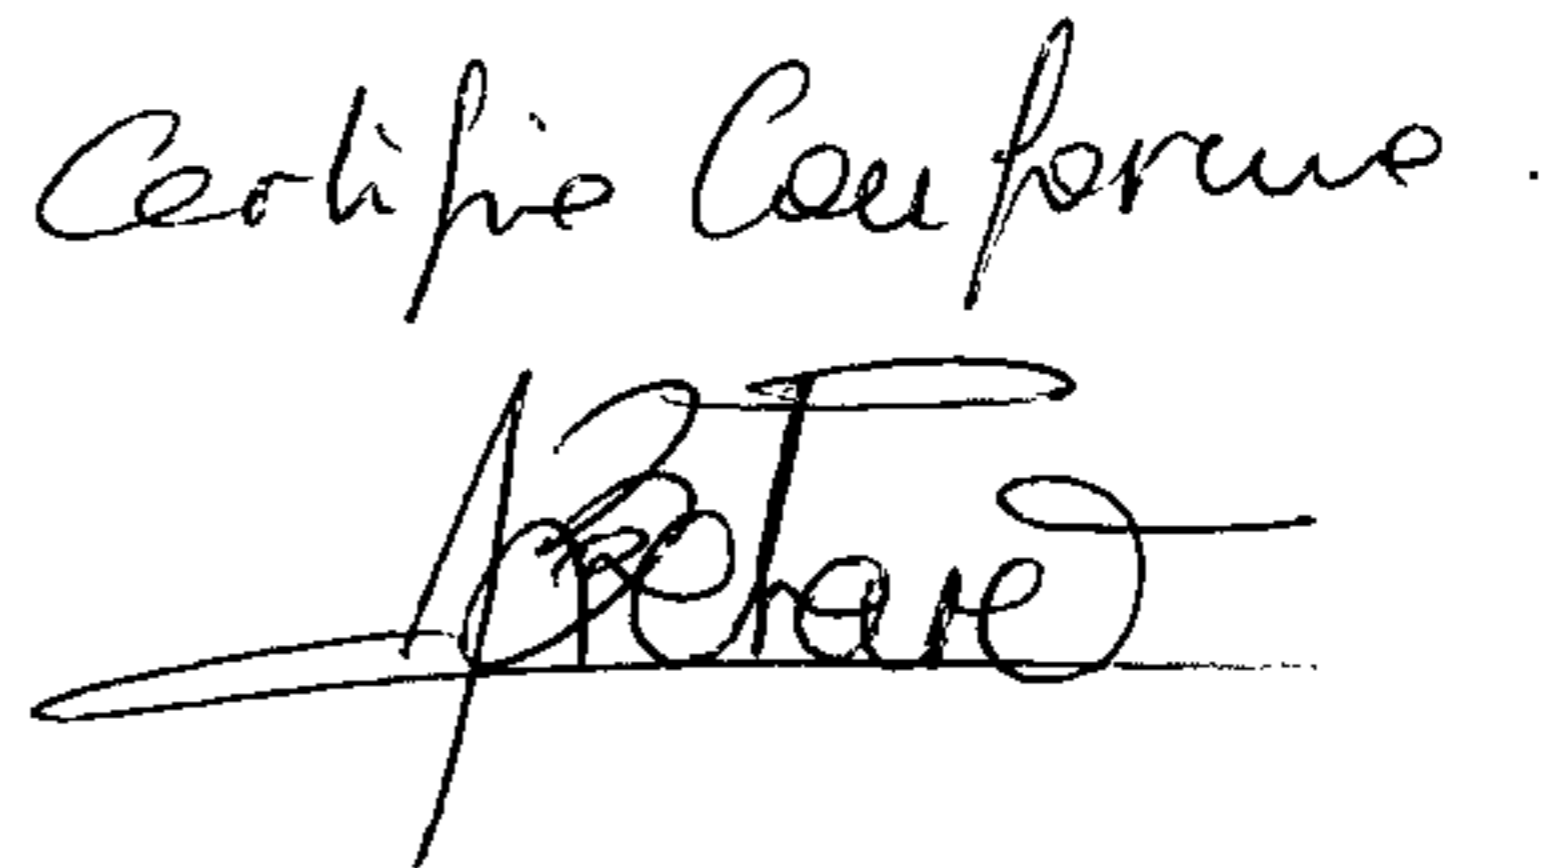 Certifie Conforme.